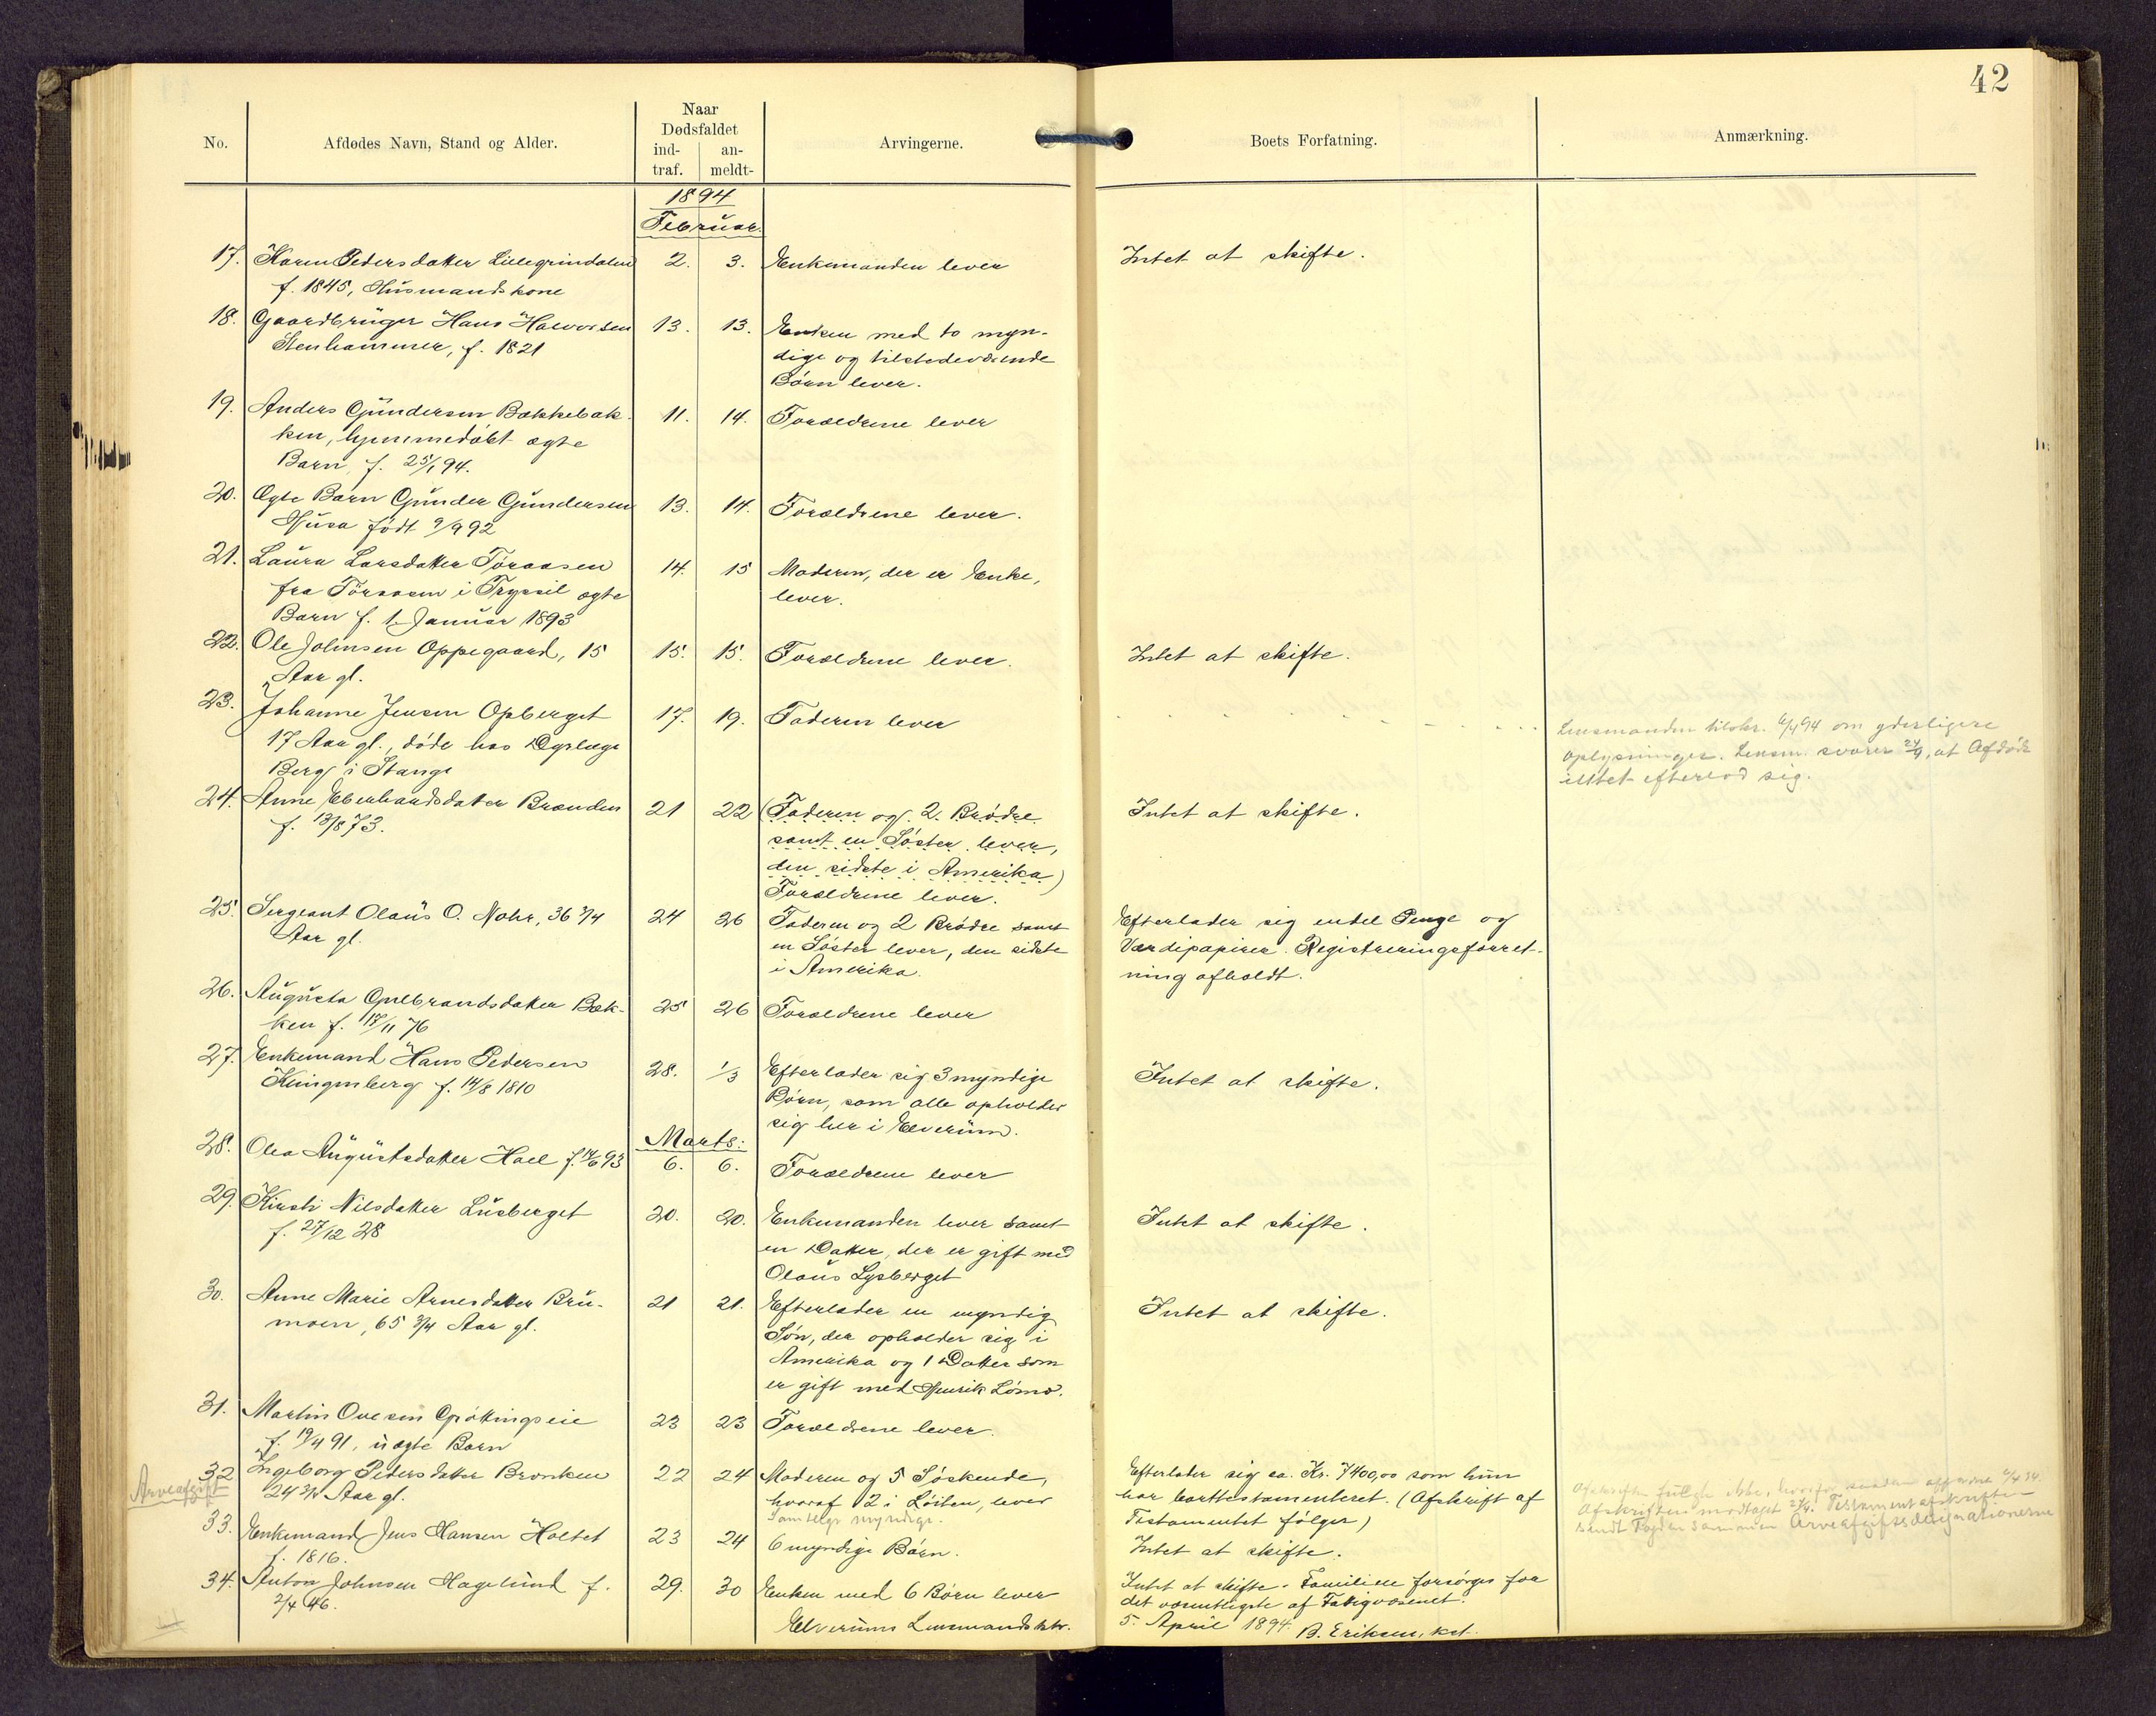 42
No.
Afdødes Navn, Stand og Alder.
Naar
Dødsfaldet
ind-
traf.
an-
meldt-
Arvingerne.
Boets Forfatning.
Anmærkning.
1894
Februar.
17. Karen Pedersdatter Lillegrindalen 2. 3. Enkemanden lever Intet at skifte.
f. 1845, Husmandskone
18. Gaardbruger Hans Halvorsen 13. 13. Enken med to myn-
Stenhammer, f. 1821 dige og tilstedeværende
Børn lever.
19. Anders Gundersen Bakkebak- 11. 14. Forældrene lever
ken, hjemmedøbt ægte
Barn, f. 25/1 94.
20. Ægte Barn Gunder Gundersen 13. 14. Forældrene lever.
Husa født 9/9 92
21. Laura Larsdatter Toraasen 14. 15 Moderen, der er Enke,
fra Toraasen i Trysil ægte lever.
Barn f. 1. Januar 1893
22. Ole Johnsen Oppegaard, 15 15. 15. Forældrene lever. Intet at skifte.
Aar gl.
23. Johanne Jensen Opberget 17. 19. Faderen lever
17 Aar gl., døde hos Dyrlæge
Berg i Stange
Lensmanden tilskr. 6/4 94 om yderligere
oplysninger. Lensm. svarer 24/4, at Afdøde
intet efterlod sig.
24. Anne Eberhardsdatter Brænden 21 22 (Faderen og 2 Brødre Intet at skifte.
f. 13/8 73. samt en Søster lever,
den sidste i Amerika)
Forældrene lever.
25. Sergeant Olaus O. Nohr, 36 3/4 24 26 Faderen og 2 Brødre samt Efterlader sig endel Penge og
Aar gl. en Søster lever, den sidste Værdipapirer. Registreringsforret-
i Amerika. ning afholdt.
26. Augusta Gulbrandsdatter Bæk- 25 26 Forældrene lever
ken f. 17/11 76
27. Enkemand Hans Pedersen 28. 1/3 Efterlader sig 3 myndige Intet at skifte.
Klingenberg f. 14/8 1810 Børn, som alle opholder
sig her i Elverum.
Marts:
28. Olea Augustsdatter Hoel f. 14/6 93 6. 6. Forældrene lever
29. Kirsti Nilsdatter Lusberget 20. 20. Enkemanden lever samt Intet at skifte.
f. 27/12 28 en Datter, der er gift med
Olaus Lysberget
30. Anne Marie Arnesdatter Bru- 21 21. Efterlader en myndig Intet at skifte.
moen, 65 3/4 Aar gl. Søn, der opholder sig i
Amerika og 1 Datter som
er gift med Henrik Lømo.
31. Martin Ovesen Grøttingseie 23 23 Forældrene lever.
f. 19/4 91, uægte Barn
Arveafgift
32 Ingeborg Pedersdatter Bronken 22 24 Moderen og 5 Søskende, Efterlader sig ca. Kr. 7400,00 som hun
24 3/4 Aar gl. hvoraf 2 i Løiten, lever har borttestamenteret. (Afskrift af
Samtlige myndige. Testamentet følger)
Afskriften fulgte ikke, hvorfor saadan
Afskriften modtaget 24/4. Testamentafskriften
sendt Fogden sammen Arveafgiftsdesignationerne
33. Enkemand Jens Hansen Holtet 23 24 6 myndige Børn. Intet at skifte.
f. 1816.
34. Anton Johnsen Hagelund f. 29. 30 Enken med 6 Børn lever Intet at skifte. Familien forsørges for
2/4 46. det væsentligste af Fattigvæsenet.
Elverums Lensmandsktr. 5. April 1894. B. Eriksen, kst.